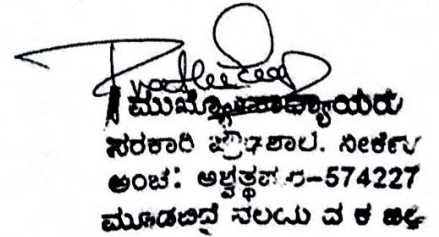 ಮುಖ್ಯೋಪಾಧ್ಯಾಯರು
ಸರಕಾರಿ ಪ್ರೌಢಶಾಲೆ. ನೀರ್ಕೆರೆ
ಅಂಚೆ: ಅಶ್ವತ್ಥಪುರ-574227
ಮೂಡಬಿದ್ರೆ ವಲಯ ದ ಕ ಜಿಲ್ಲೆ